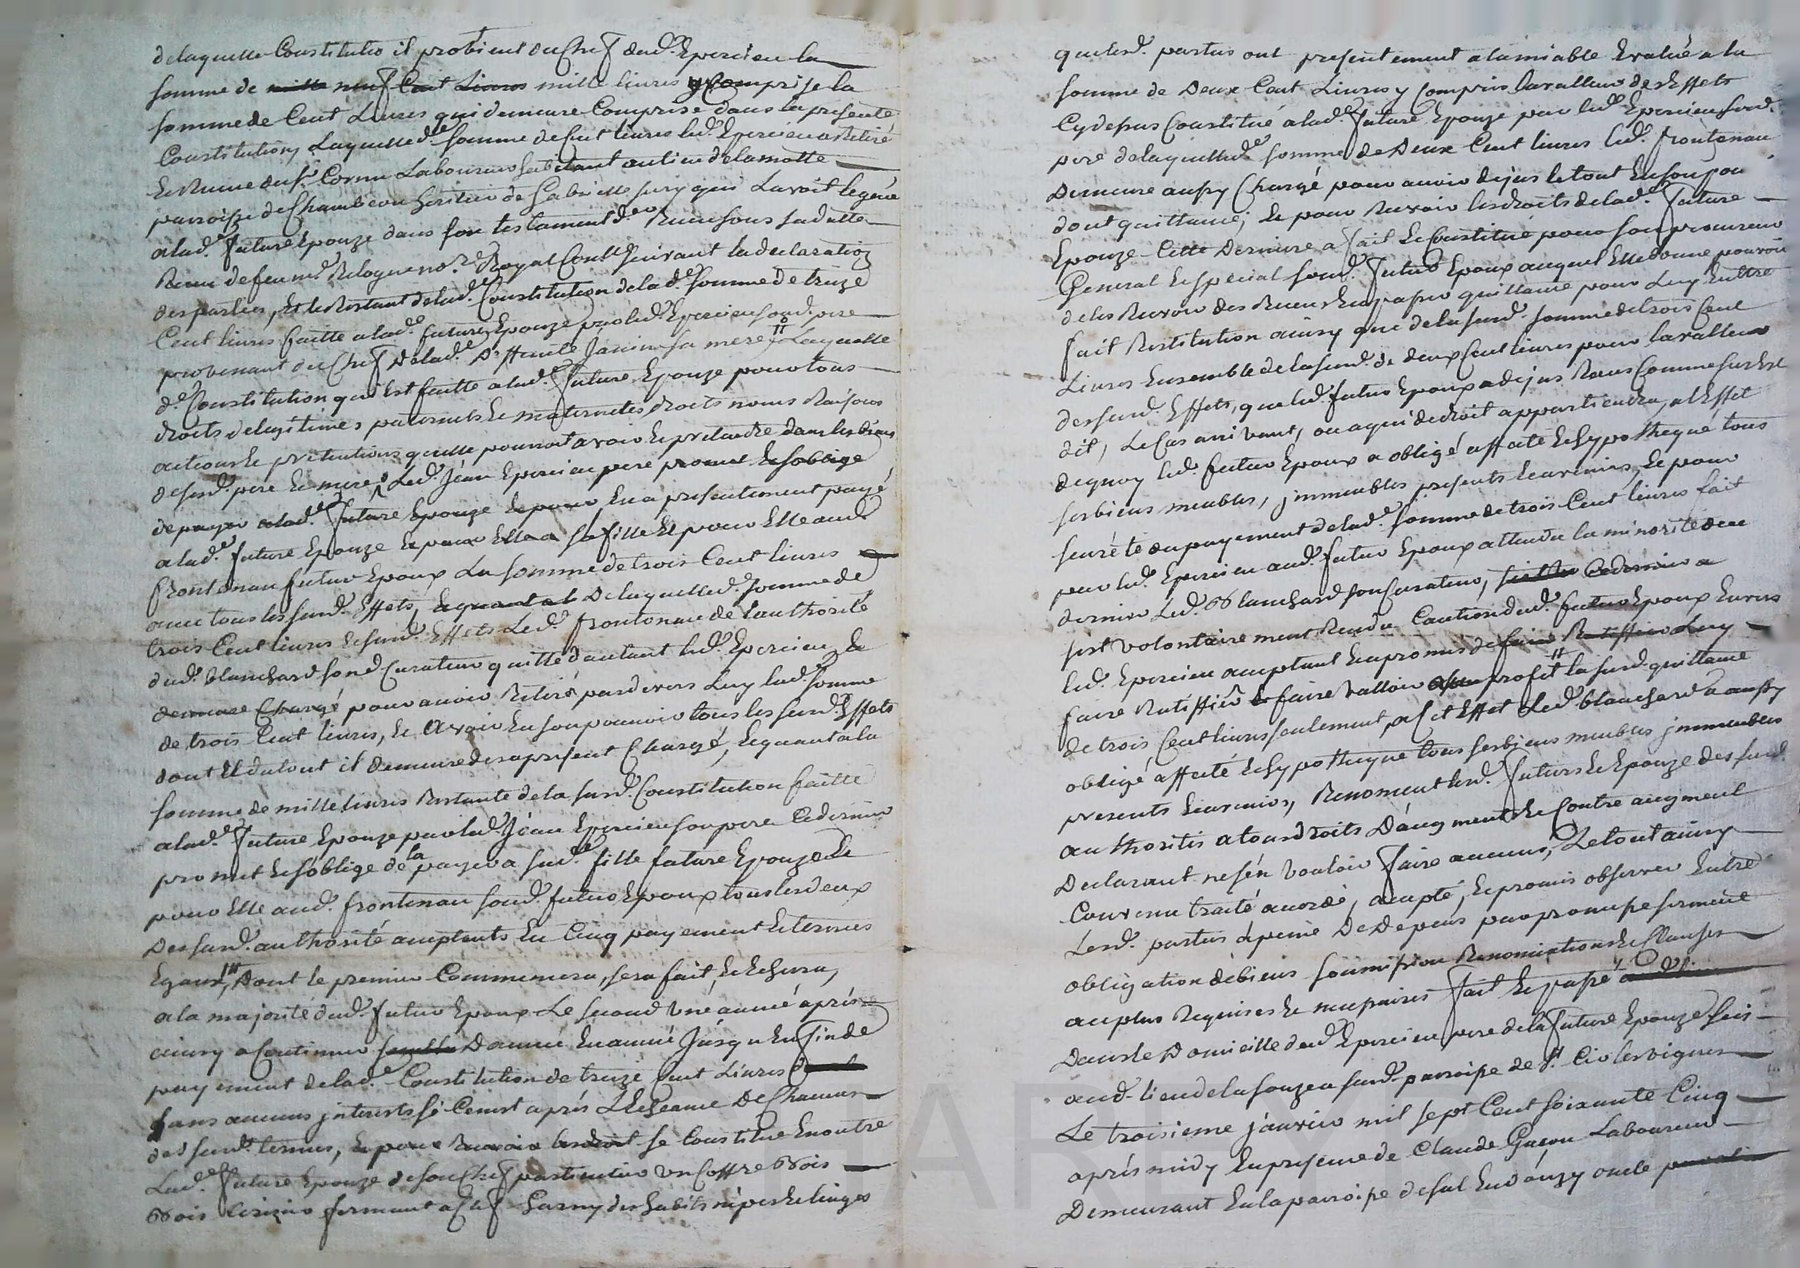 de laquelle Constitution il provient du Chef dud. Epercieu la
somme de mille neuf Cent Livres mille livres y Comprise la
somme de Cent Livres qui demeure Comprise dans la presente
Constitution, Laquelle de. somme de Cent livres led. Epercieu a Retiré
Laboureur au lieu de la motte
paroisse de Chambeon heritier de Gabrielle qui Lavoit leguée
a lad. future Epouze dans son testament Receu sous sa datte
Royal suivant la declaration
des parties, Et le Restant de lad. Constitution de lad. somme de treize
Cent livres faitte a lad. future Epouze par led. Epercieu sond. pere
provenant du Chef de lad. Janin sa mere Laquelle
de. Constitution qui Est faitte a lad. future Epouze pour tous
droits de legitimes paternels Et maternels droits noms Raisons
actions Et pretentions quelle pourroit avoir Et pretendre dans les biens
de sesd. pere Et mere, Led. Jean Epercieu pere promet Et soblige
de payer a lad. future Epouze Et pour En a presentement payé
a lad. future Epouze Et pour Elle a sa fille Et pour Elle aud.
frontenau futur Epoux La somme de trois Cent livres
avec tous les susd. Effets, Et quant a la De laquelle de. somme de
trois Cent livres Et susd. Effets Led. frontenau de l'authorité
dud. blanchard sond. Curateur quitte d'autant led. Epercieu, Et
demeure Chargé pour avoir Retiré pardevers Luy lad. somme
de trois Cent livres, Et Avoir En son pouvoir tous les susd. Effets
dont Et du tout il demeure des a present Chargé, Et quant a la
somme de mille livres Restante de la susd. Constitution faitte
a lad. future Epouze par led. Jean Epercieu son pere Ce dernier
promet Et soblige de la payer a sad. fille future Epouze Et
pour Elle aud. frontenau sond. futur Epoux tous les deux
De susd. authorité acceptants En Cinq payement Et termes
Egaux, Dont le premier Commencera, sera fait, Et Echerra,
a la majorité dud. futur Epoux Le second Une année après
ainsy a Continuer D'année En année Jusqu'En fin de
payement de lad. Constitution de treize Cent Livres
sans aucuns jnterests si Ce n'est après L'Echeance De Chacun
des susd. termes, Et pour se Constitue En outre
Lad. future Epouze de son Chef particulier un Coffre Bois
Bois Cerizier fermant a Clef Garny des habits nipes Et linges
que lesd. parties ont presentement a lamiable Evalué a la
somme de Deux Cent Livres y Compris la valleur des Effets
Cy depus Constitué a lad. future Epouze par led. Epercieu sond.
pere de laquelle de. somme de Deux Cent livres led. frontenau
Demeure aussy Chargé pour avoir dejas le tout En son pou
dont quittance, Et pour Recevoir les droits de lad. future
Epouze Cette Derniere a fait Et Constitué pour son procureur
General Et special sond. futur Epoux auquel Elle donne pouvoir
de les Recevoir des Receus En passer quittance pour Luy Entre
fait Restitution ainsy que de la susd. somme de trois Cent
Livres Ensemble de la susd. de deux Cent livres pour la valleur
des susd. Effets, que led. futur Epoux a dejas Receus Comme sus Est
dit, Le Cas arrivant, ou a qui de droit appartiendra, a l'Effet
de quoy led. futur Epoux a obligé affecté Et hypothequé tous
ses biens meubles, jmmeubles presents Et avenirs, Et pour
seureté du payement de lad. somme de trois Cent livres fait
par led. Epercieu aud. futur Epoux attendu la minorité de ce
dernier Led. Blanchard son Curateur, Ce dernier a
s'est volontairement Rendu Caution dud. futur Epoux Envers
led. Epercieu acceptant Et a promis de faire Ratiffier Luy
faire Ratiffier Et faire valloir profit la susd. quittance
de trois Cent livres seulement a Cet Effet Led. blanchard a aussy
obligé affecté Et hypothequé tous ses biens meubles jmmeubles
presents Et avenirs, Renoncent lesd. futurs Et Epouze des susd.
authorités a tous droits D'augment Et Contre augment
Declarant ne s'en vouloir faire aucuns, Le tout ainsy
Convenu traité acordé, accepté, Et promis observer Entre
Lesd. parties a peine De Depens par promesse serment
obligation de biens soumission Renonciations Et Clauses
au plus Requises Et necessaires fait Et passé
Dans le Domicille dud. Epercieu pere de la future Epouze sis
aud. lieu de la susd. paroisse de St. Cir les vignes
Le troisieme janvier mil sept Cent soixante Cinq
après midy En presence de Claude Guyon Laboureur
Demeurant En la paroisse de sal En donzy oncle